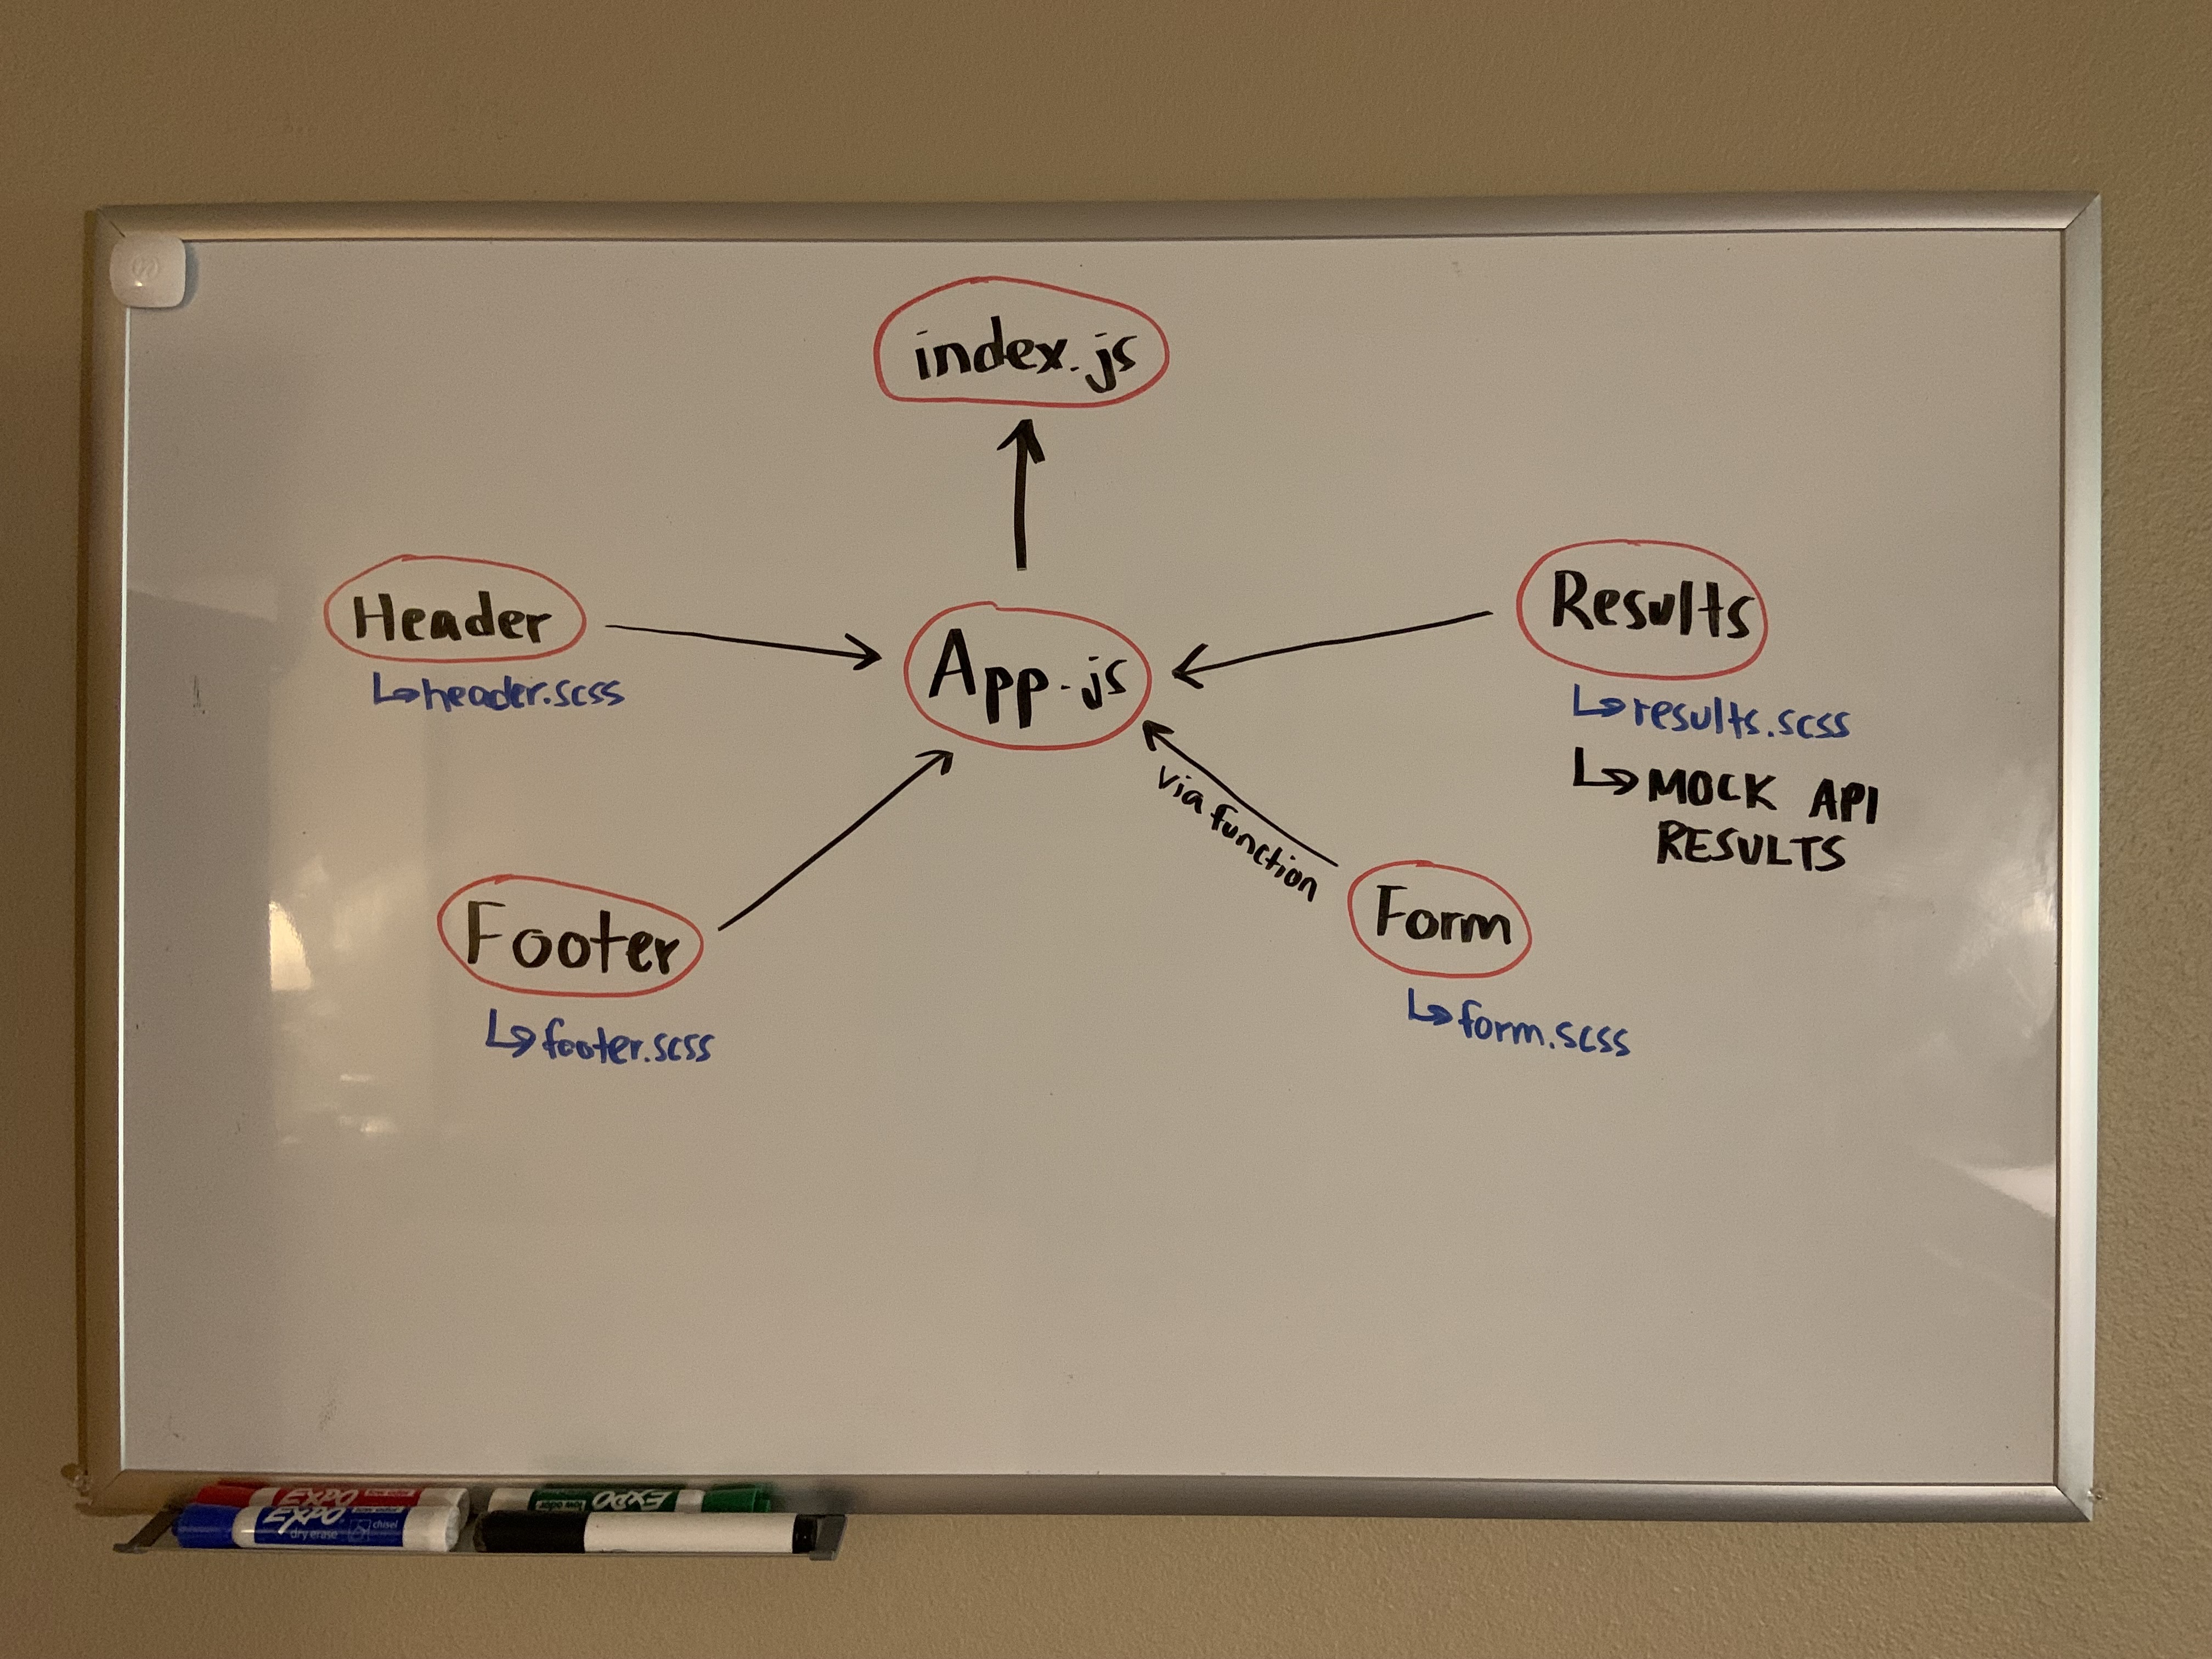 index.js
Header
↳header.scss
App.js
Results
↳results.scss
↳MOCK API
RESULTS
via function
Footer
↳footer.scss
Form
↳form.scss
EXPO
low odor
EXPO
dry erase
chisel
EXPO
low odor